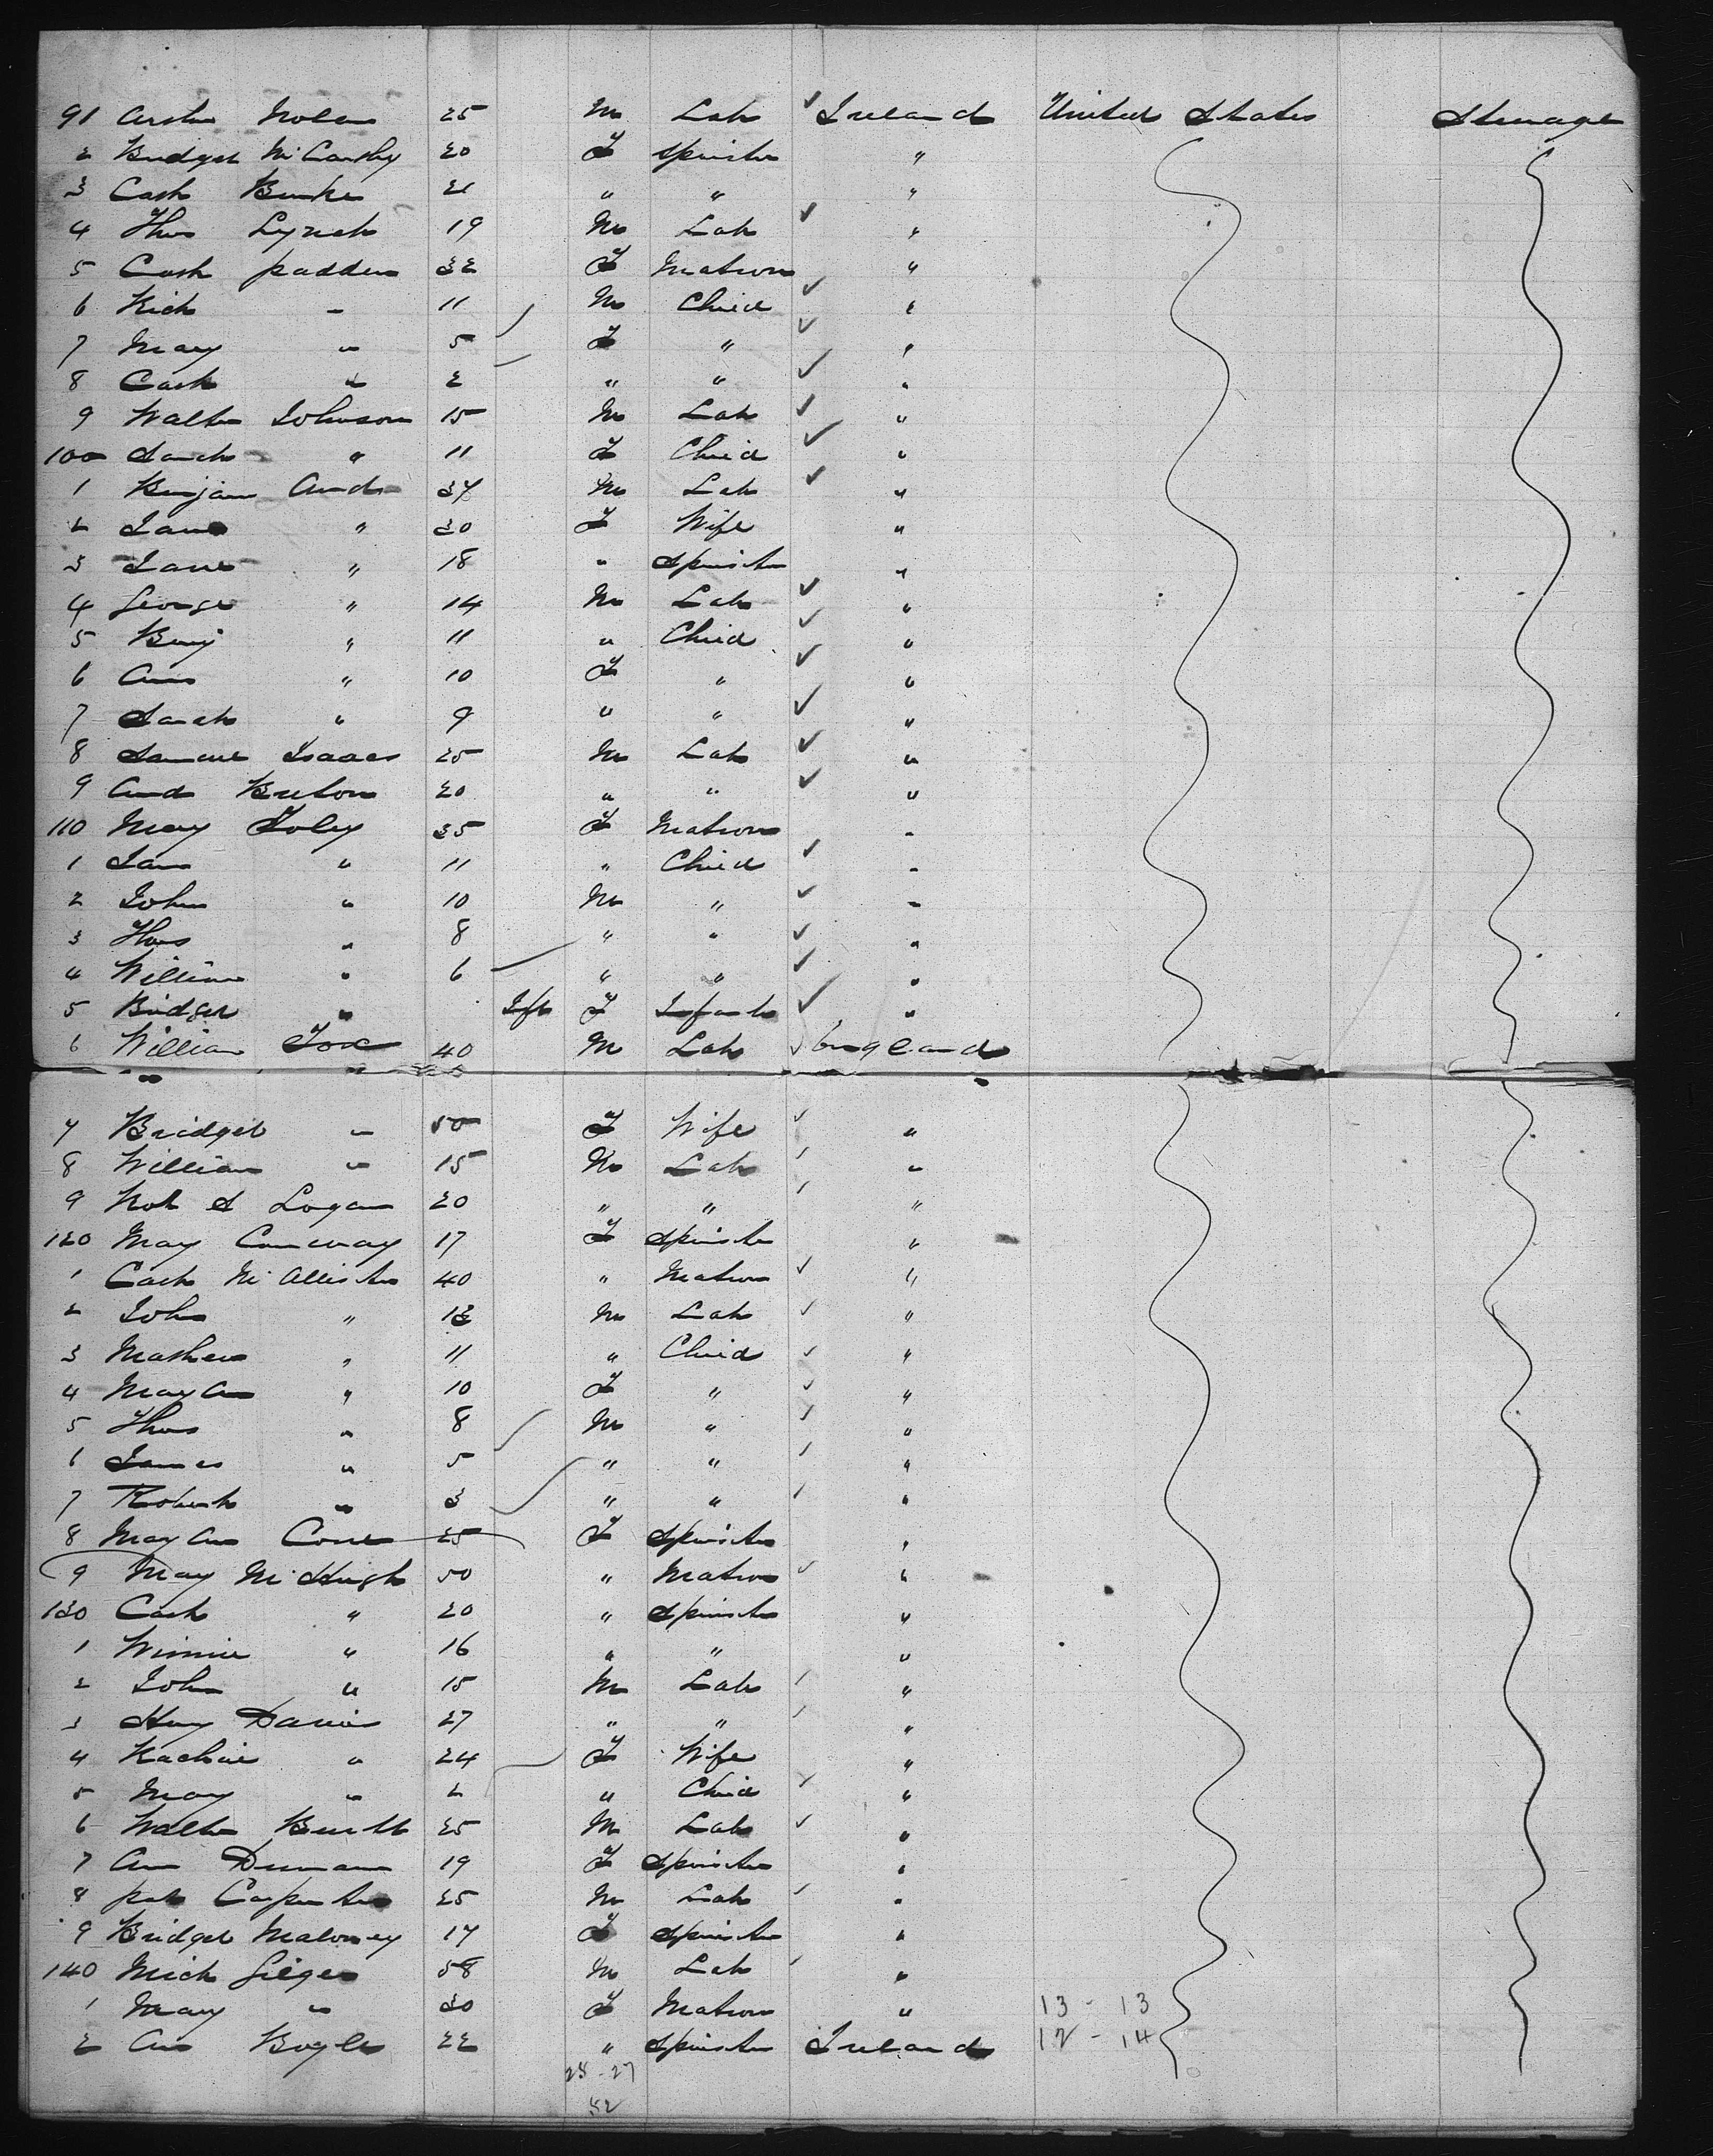 91 Arthur Nolan 25 M Lab ✓ Ireland United States Steerage
2 Bridget McCarthy 20 F Spinster "
3 Cath Burke 21 " " "
4 Thos Lynch 19 M Lab ✓ "
5 Cath padden 32 F Matron "
6 Rich " 11 M Child ✓ "
7 Mary " 5 F " ✓ "
8 Cath " 2 " " ✓ "
9 Walter Johnson 15 M Lab ✓ "
100 Sarah " 11 F Child ✓ "
1 Benjam 34 M Lab ✓ "
2 Jane " 30 F Wife "
3 Jane " 18 " Spinster "
4 George " 14 M Lab ✓ "
5 Benj " 11 " Child ✓ "
6 Ann " 10 F " ✓ "
7 Sarah " 9 " " ✓ "
8 Samuel Isaacs 25 M Lab ✓ "
9 And 20 " " ✓ "
110 Mary Foley 35 F Matron "
1 Jane " 11 " Child ✓ "
2 John " 10 M " ✓ "
3 Thos " 8 " " ✓ "
4 William " 6 " " ✓ "
5 Bridget " Inft F Infant ✓ "
6 William Fox 40 M Lab ✓ England
7 Bridget " 50 F Wife ✓ "
8 William " 15 M Lab ✓ "
9 Rob S Logan 20 " " ✓ "
120 Mary Conway 17 F Spinster "
1 Cath McAllister 40 " Matron ✓ "
2 John " 12 M Lab ✓ "
3 Mathew " 11 " Child ✓ "
4 Mary Ann " 10 F " ✓ "
5 Thos " 8 M " ✓ "
6 James " 5 " " ✓ "
7 Robert " 3 " " ✓ "
8 Mary Ann Cone 25 F Spinster "
9 Mary McHugh 50 " Matron ✓ "
130 Cath " 20 " Spinster "
1 Winnie " 16 " " "
2 John " 15 M Lab ✓ "
3 Hury Davies 27 " " ✓ "
4 " 24 F Wife "
5 Mary " 2 " Child ✓ "
6 Walter 25 M Lab ✓ "
7 Ann 19 F Spinster "
8 pat Carpenter 25 M Lab ✓ "
9 Bridget Maloney 17 F Spinster "
140 Mich 58 M Lab ✓ "
1 Mary " 30 F Matron " 13 - 13
2 Ann Boyle 22 " Spinster Ireland 12 - 14
25 - 27
52